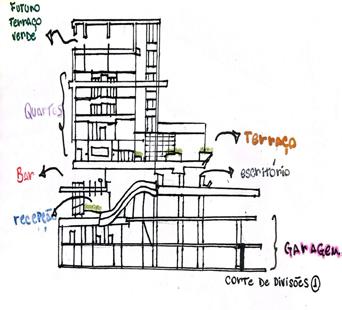 FUTURO
TERRAÇO
VERDE
Quartos
Terraço
Bar
escritório
recepção
GARAGEM
CORTE DE DIVISÕES 1